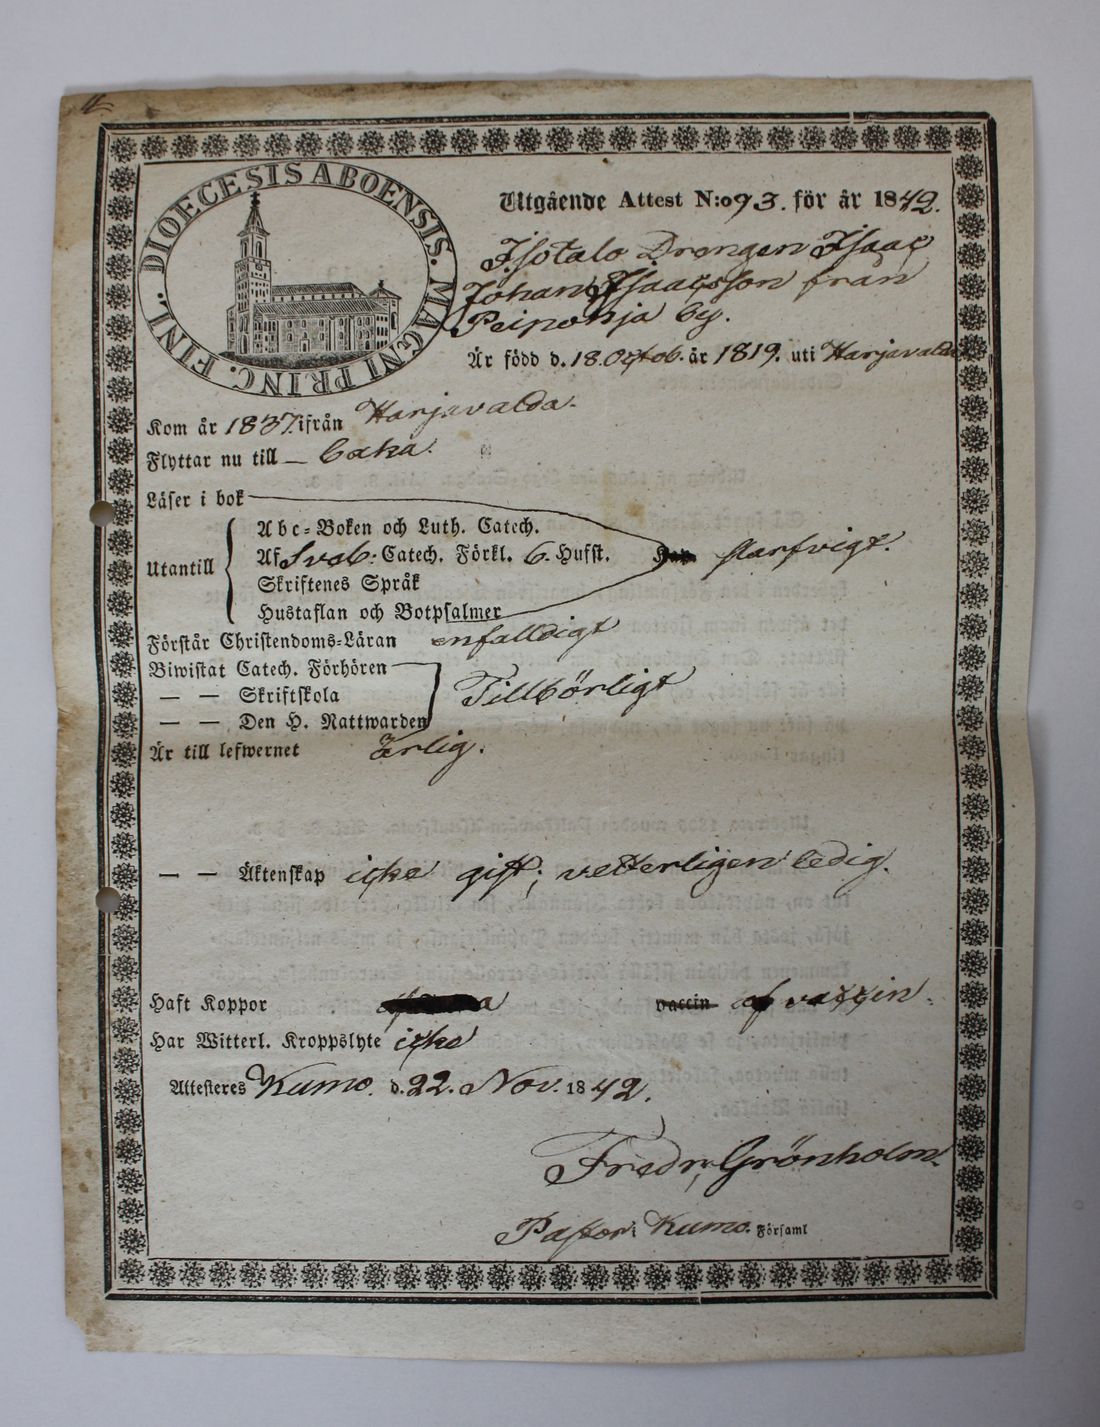 DIOECESIS ABOENSIS. MAGNI PRINC. FINL.
Utgående Attest N:o 93. för år 1842.
Isotalo Drengen Isaac
Johan Isaacsson från
Peipohja by.
Är född d. 18. Octob. år 1819. uti Harjavalda
Kom år 1837. ifrån Harjavalda.
Flyttar nu till — Caka.
Läser i bok
Abc-Boken och Luth. Catech.
Utantill Af Sveb: Catech. Förkl. 6. Hufst. slarfvigt.
Skriftenes Språk
Hustaflan och Botpsalmer
Förstår Christendoms-Läran enfalldigt
Biwistat Catech. Förhören
— — Skriftskola Tillbörligt
— — Den H. Nattwarden
Är till lefwernet Ärlig.
— — Äktenskap icke gift; vetterligen ledig.
Haft Koppor vaccin af vaccin.
Har Witterl. Kroppslyte icke
Attesteras Kumo. d. 22. Nov. 1842.
Fredr. Grönholm.
Pastor i Kumo. Församl